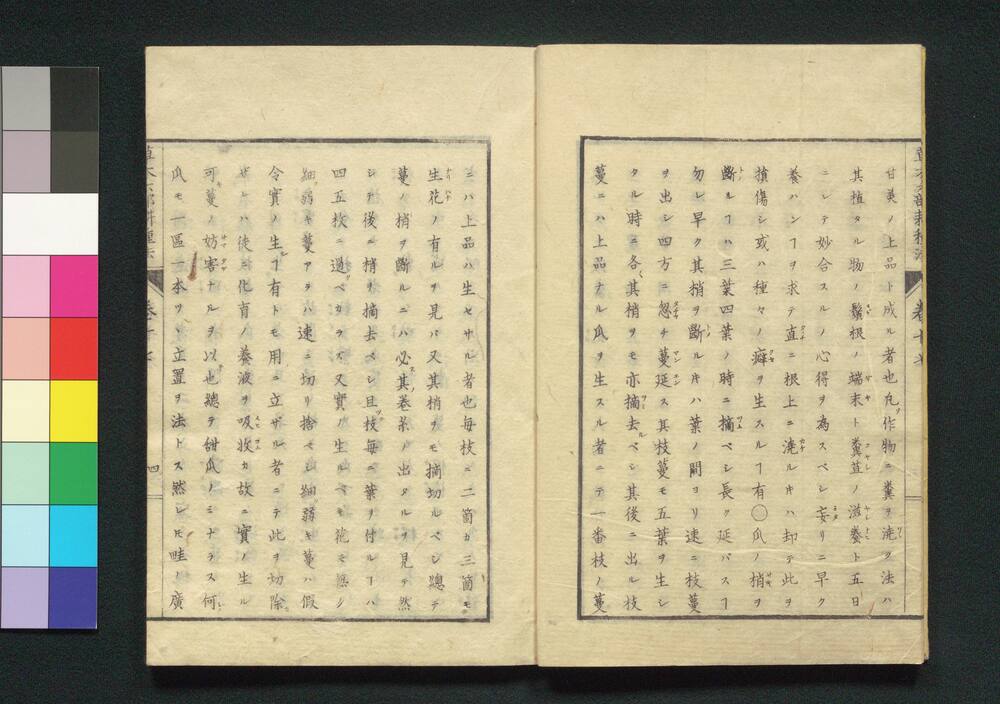 甘美ノ上品ト成ル者也凡ソ作物ニ糞ヲ澆ク法ハ
其植タル物ノ鬚根ノ端末ト糞苴ノ滋養ト五日
ニシテ妙合スルノ心得ヲ為スベシ妄リニ早ク
養ハンヿヲ求テ直ニ根上ニ澆ルキハ却テ此ヲ
損傷シ或ハ種々ノ癖ヲ生スルヿ有〇瓜ノ梢ヲ
斷ルヿハ三葉四葉ノ時ニ摘ベシ長ク延バスヿ
勿レ早ク其梢ヲ斷ルキハ葉ノ間ヨリ速ニ枝蔓
ヲ出シ四方ニ忽チ蔓延ス其枝蔓モ五葉ヲ生シ
タル時ニ各〻其梢ヲモ亦摘去ルベシ其後ニ出ル枝
蔓ニハ上品ナル瓜ヲ生スル者ニテ一番枝ノ蔓
ニハ上品ハ生セサル者也毎枝ニ二箇カ三箇モ
生リ花ノ有ルヲ見バ又其梢ヲモ摘切ルベシ總テ
蔓ノ梢ヲ斷ルニハ必ス其巻糸ノ出タルヲ見テ然
シテ後ニ梢ヲ摘去ベシ且枝毎ニ葉ヲ付ルヿハ
四五枚ニ過ベカラズ又實ノ生ルベキ花モ無シ
細弱キ蔓アラハ速ニ切リ捨ベシ細弱キ蔓ハ假
令實ノ生ルヿ有トモ用ニ立ザル者ニテ此ヲ切除
ザレハ徒ニ化育ノ養液ヲ吸收カ故ニ實ノ生ル
可蔓ノ妨害ナルヲ以也總テ甜瓜ノミナラス何レノ
瓜モ一區一本ヅヽ立置ヲ法トス然レㇳモ畦ノ廣
草木六部耕種法
巻十七
四